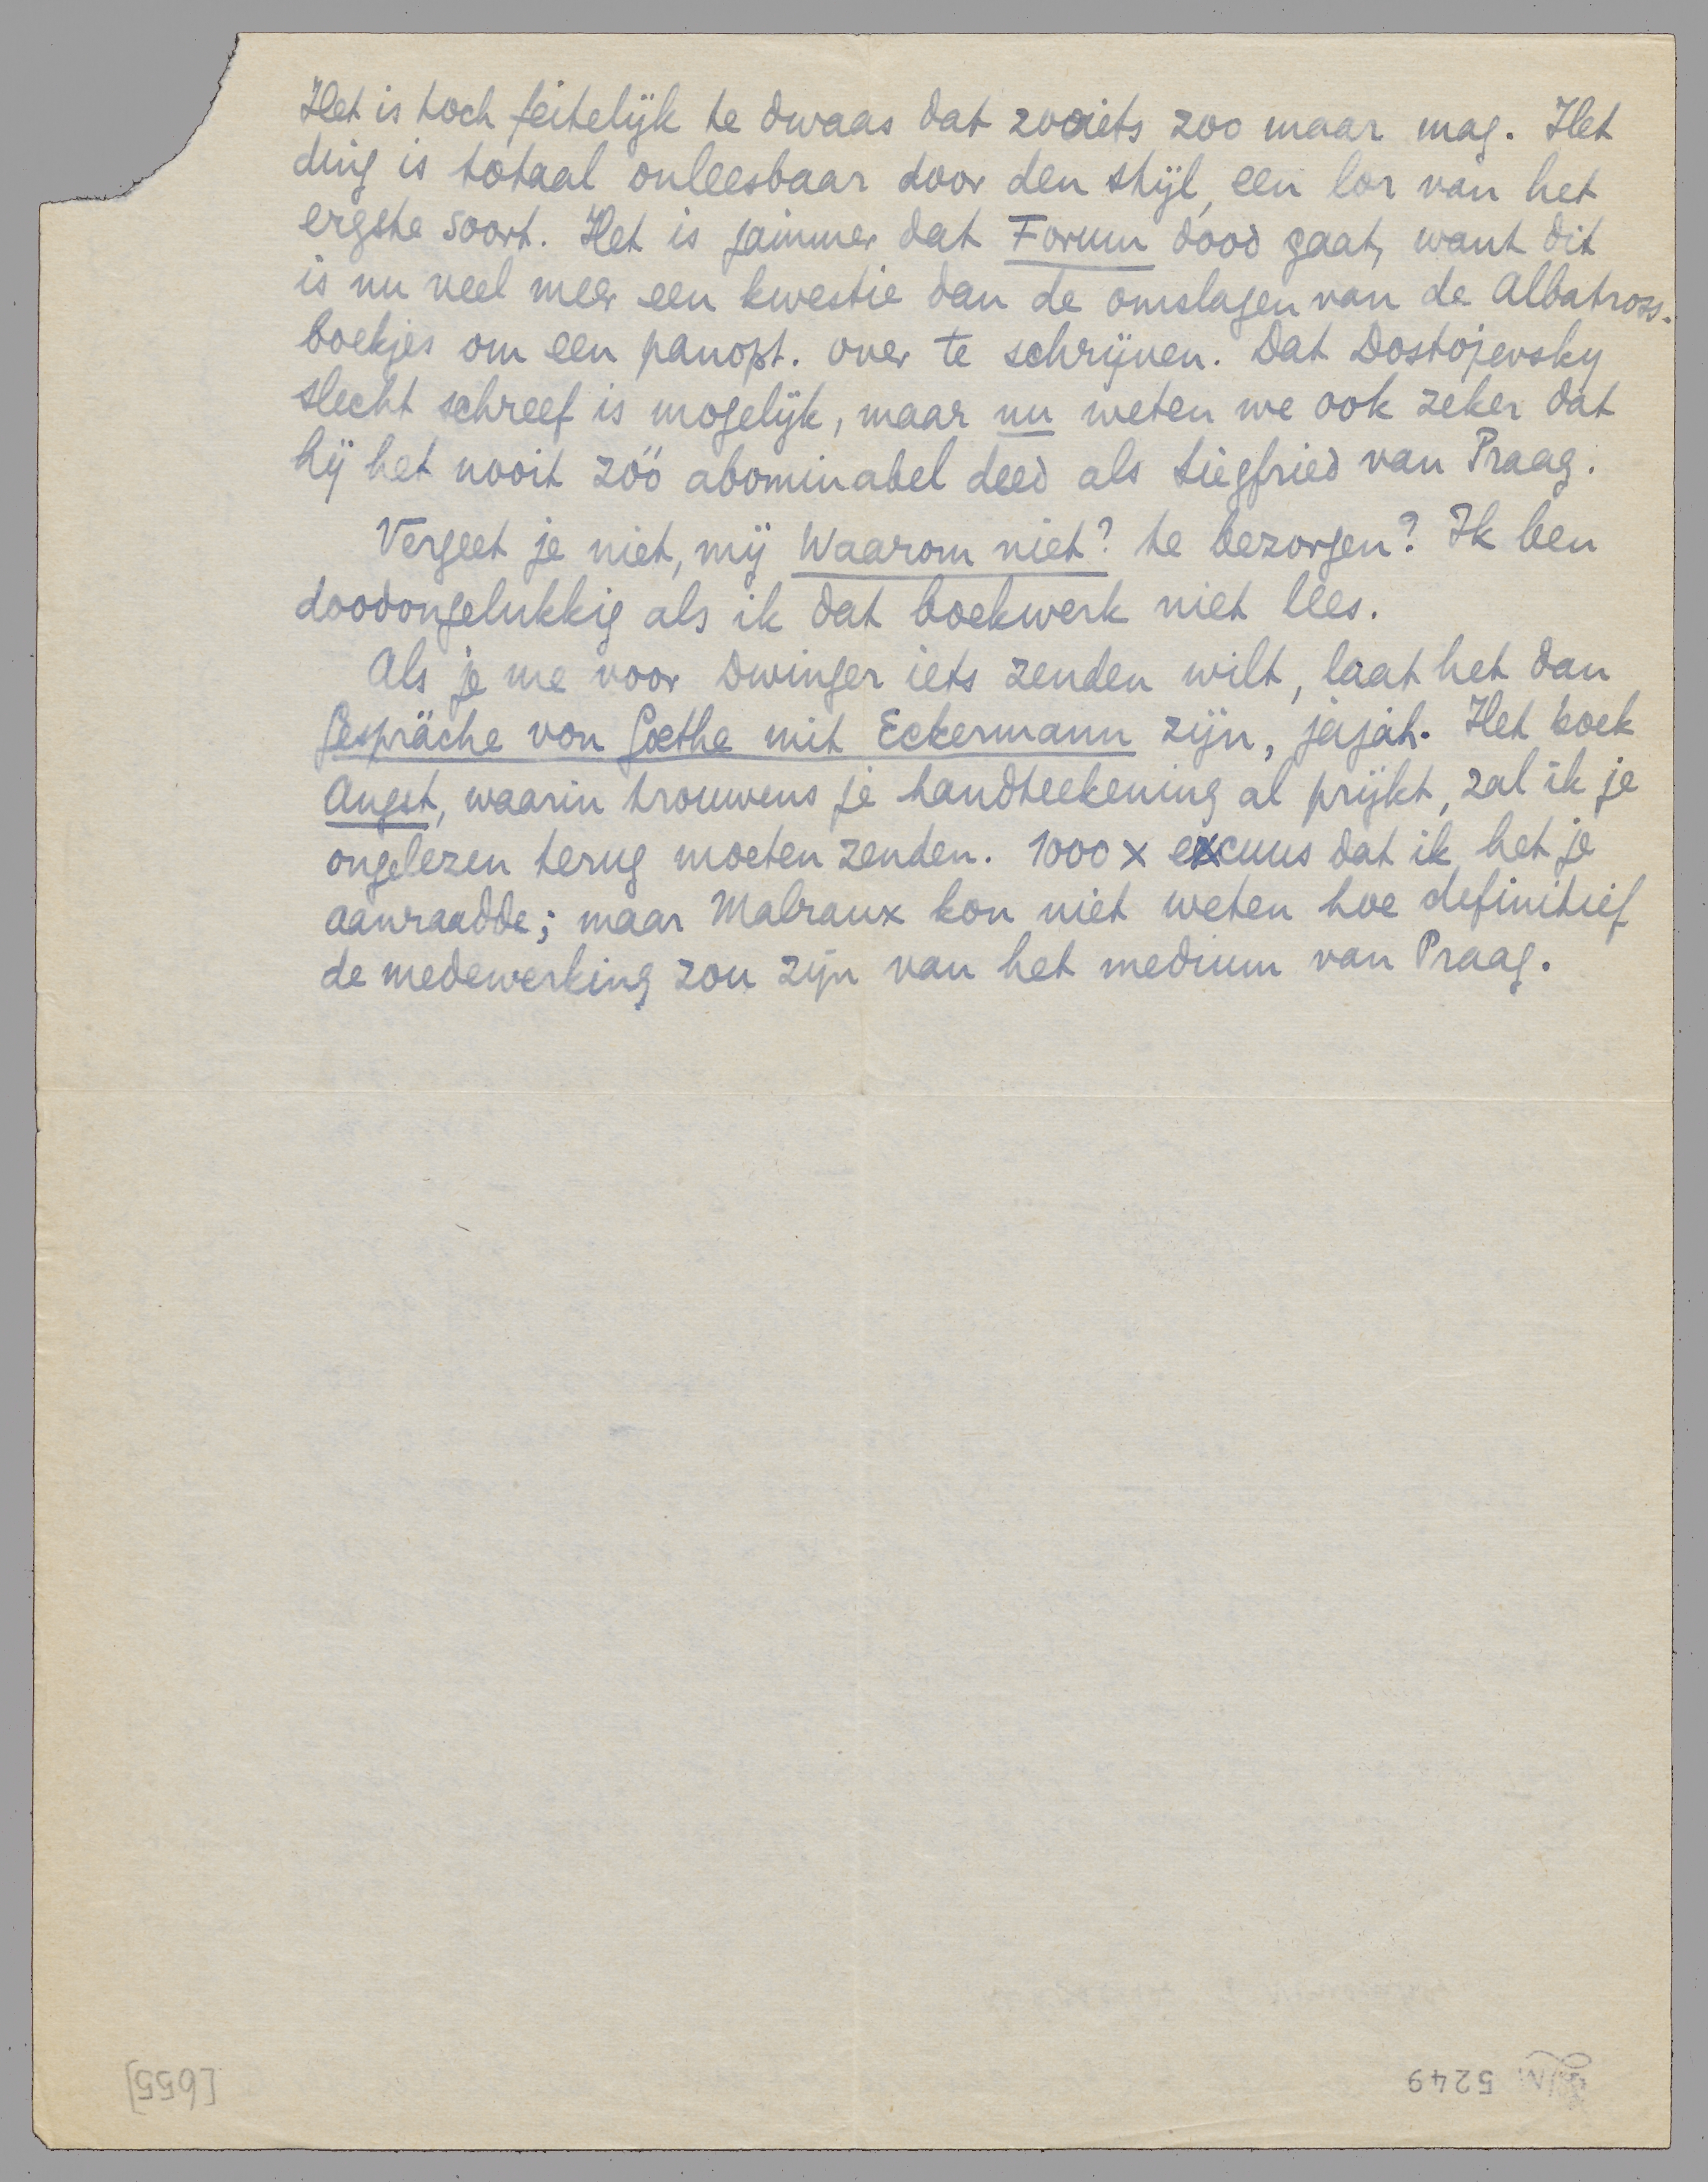 Het is toch feitelijk te dwaas dat zooiets zoo maar mag. Het
ding is totaal onleesbaar door den stijl, een lor van het
ergste soort. Het is jammer dat Forum dood gaat, want dit
is nu veel meer een kwestie dan de omslagen van de Albatross-
boekjes om een panopt. over te schrijven. Dat Dostojevsky
slecht schreef is mogelijk, maar nu weten we ook zeker dat
hij het nooit zóó abominabel deed als Siegfried van Praag.
Vergeet je niet, mij Waarom niet? te bezorgen? Ik ben
doodongelukkig als ik dat boekwerk niet lees.
Als je me voor Dwinger iets zenden wilt, laat het dan
Gespräche von Goethe mit Eckermann zijn, jajah. Het boek
Angst, waarin trouwens je handteekening al prijkt, zal ik je
ongelezen terug moeten zenden. 1000 x excuus dat ik het je
aanraadde; maar Malraux kon niet weten hoe definitief
de medewerking zou zijn van het medium van Praag.
[655]
5249